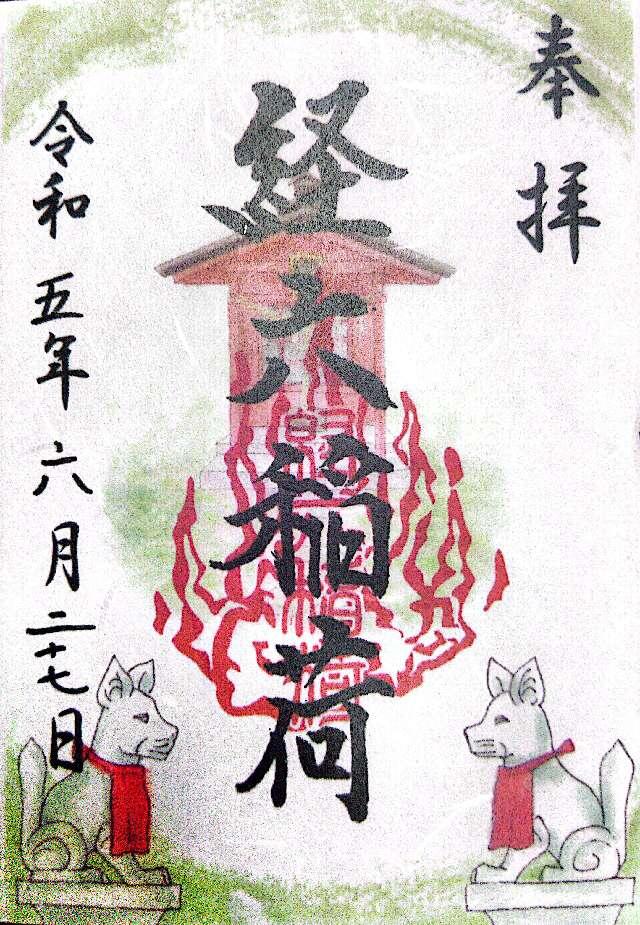 奉拝
経六稲荷
令和五年六月二十七日